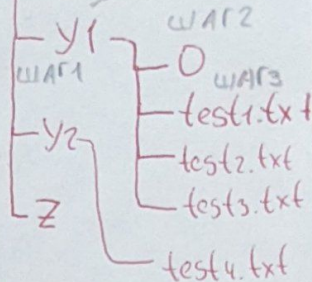 шаг2
y1
O
шаг1
шаг3
test1.txt
y2
test2.txt
z
test3.txt
test4.txt